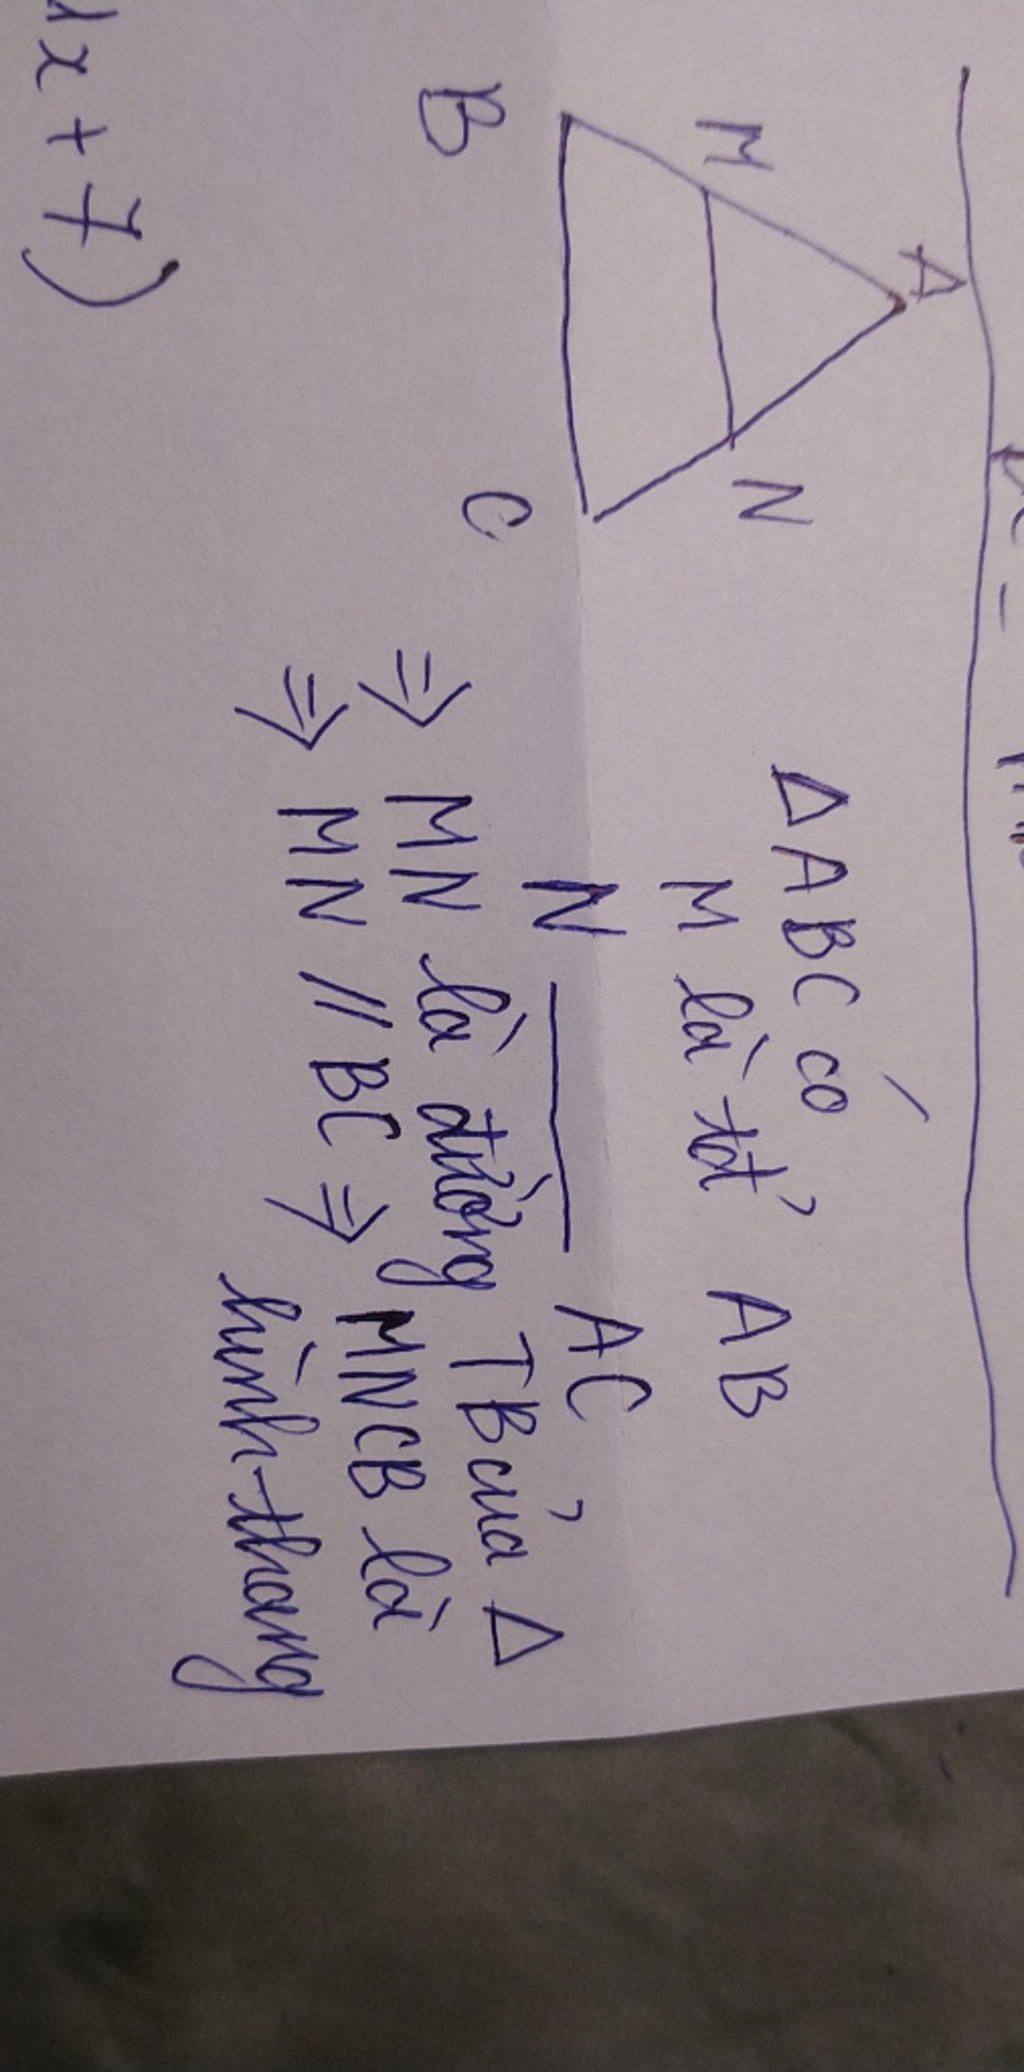 A
M
N
B
C
Δ ABC có
M là tđ' AB
N ——— AC
⇒ MN là đường TB của Δ
⇒ MN // BC ⇒ MNCB là
hình thang
x + 7)